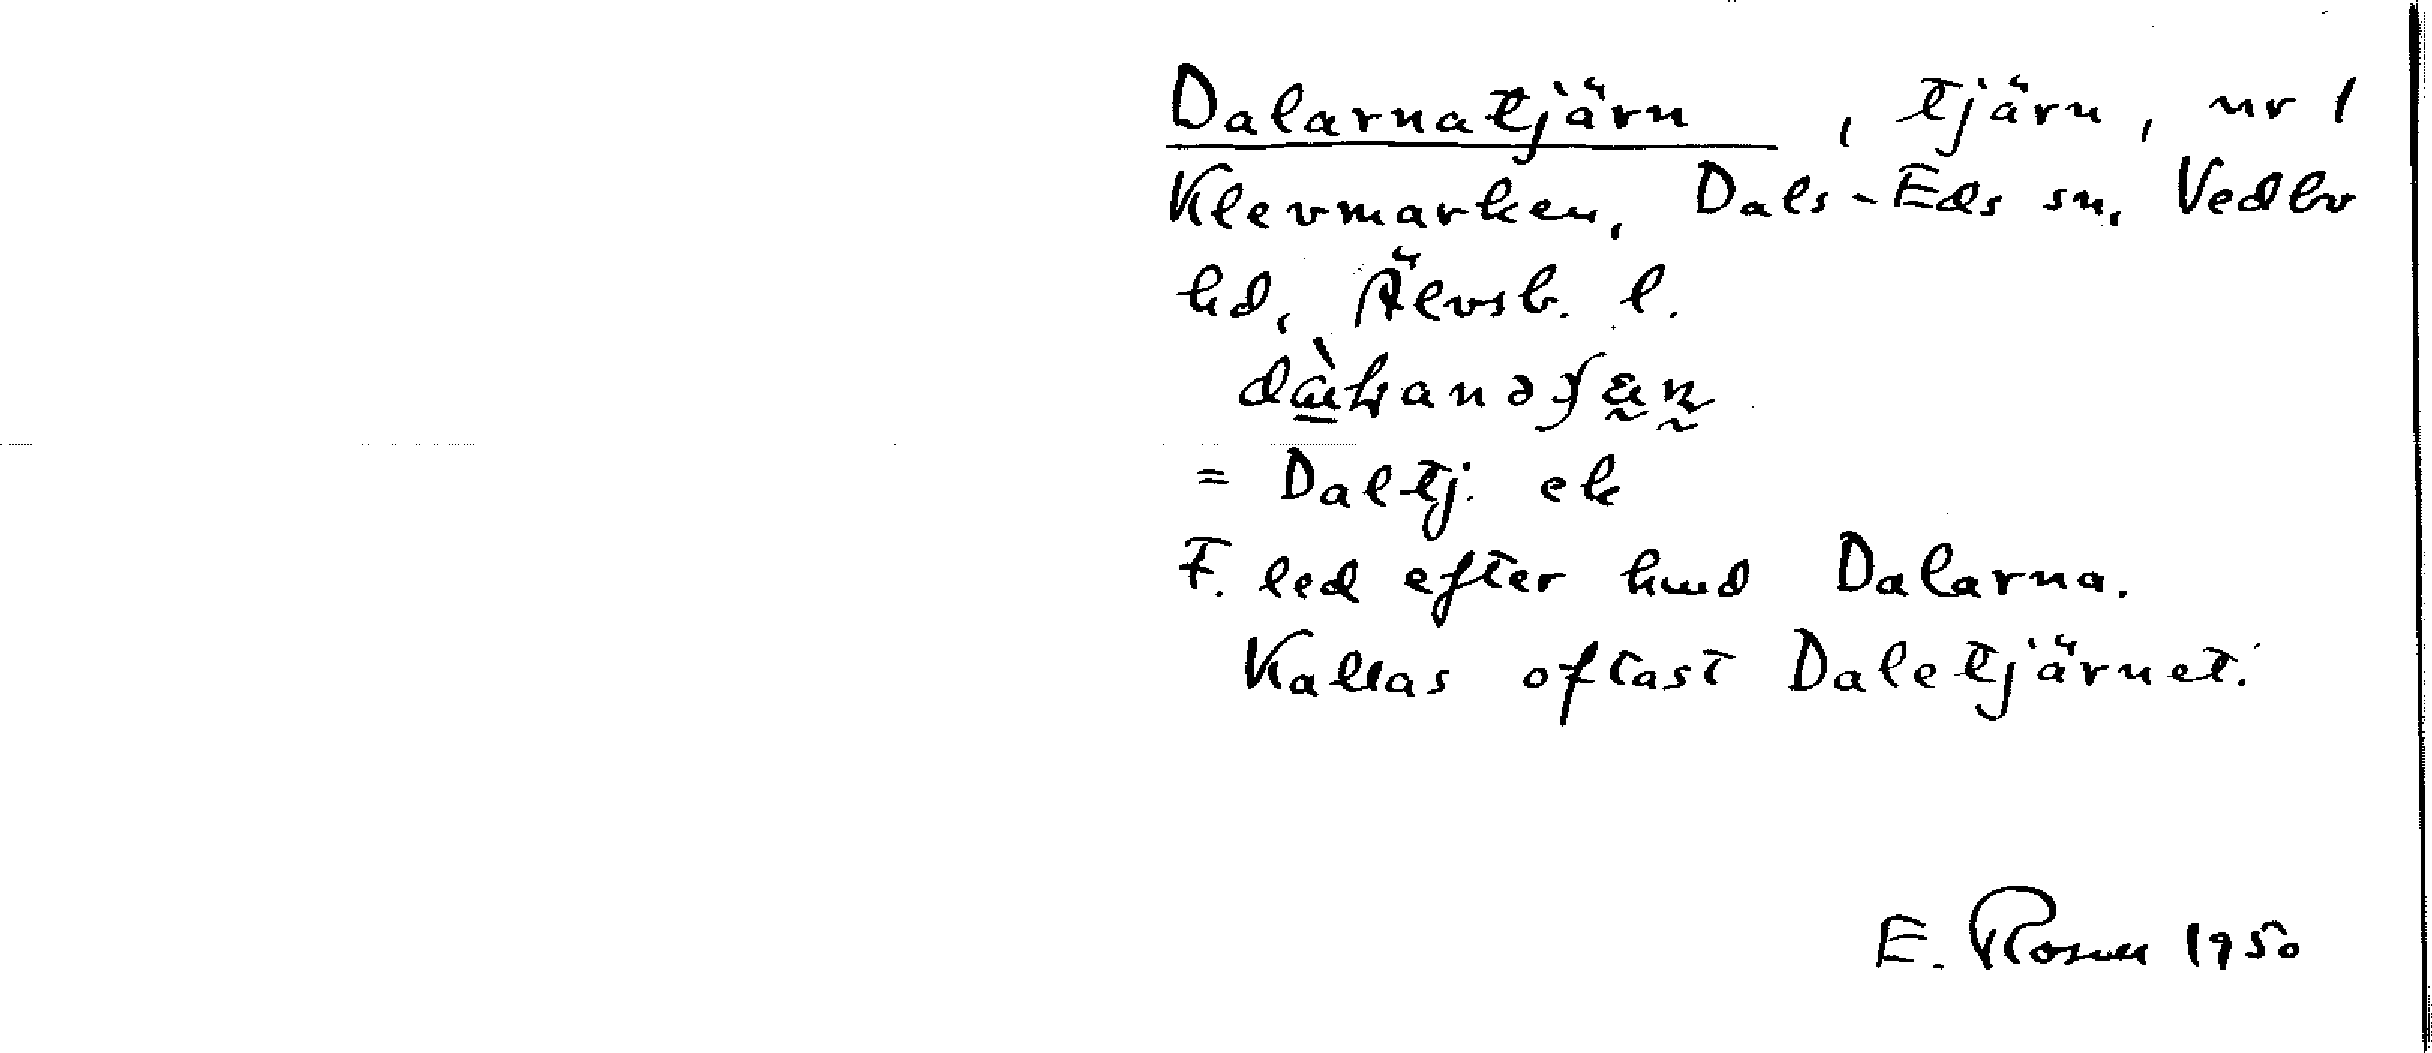 Dalarnatjärn, tjärn, nr 1
Klevmarken, Dals-Eds sn, Vedbo
hd, Älvsb. l.
= Daltj. ek
F. led efter hmd Dalarna.
Kallas oftast Daletjärnet.
E. Rosell 1950